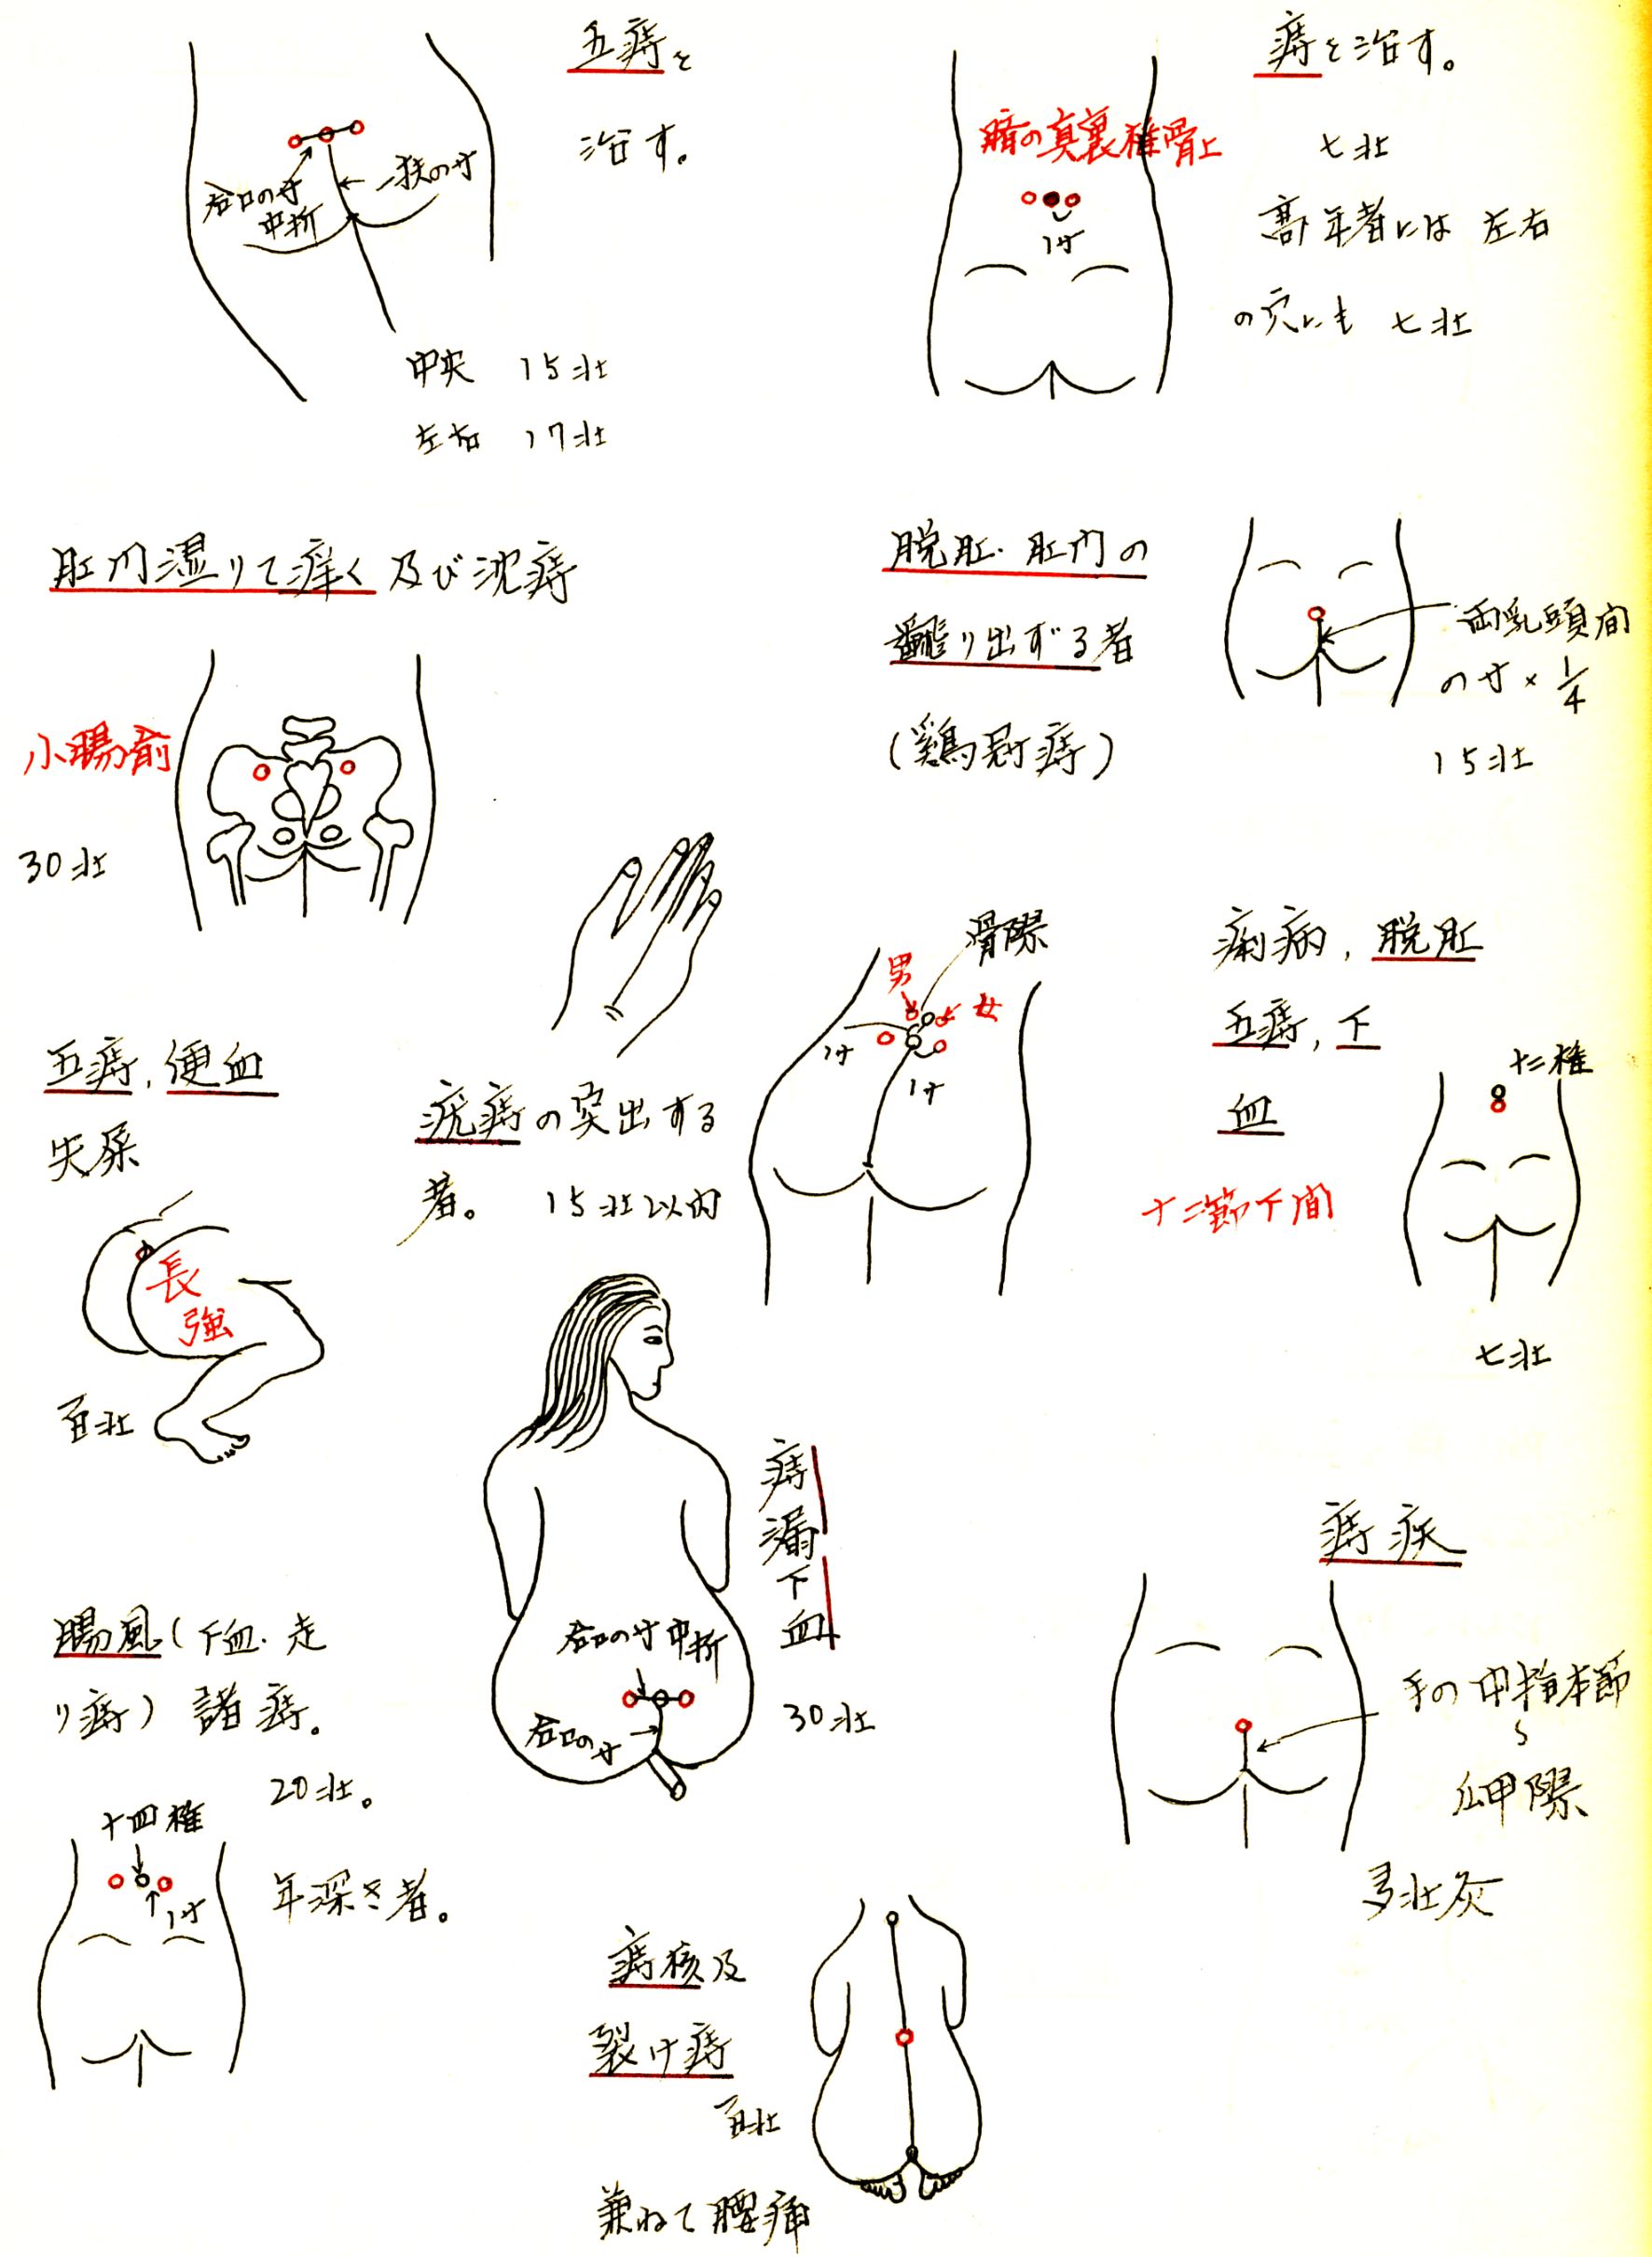 五痔を
治す。
合口の寸
中折
一扶の寸
中央 15壮
左右 17壮
痔を治す。
臍の真裏椎骨上
七壮
1寸
高年者には 左右
の穴にも 七壮
肛門湿りて痒く及び沈痔
小腸俞
30壮
脱肛・肛門の
翻り出ずる者
(鶏冠痔)
両乳頭間
の寸×1/4
15壮
五痔,便血
失屎
長
強
百壮
疣痔の突出する
者。 15壮以内
骨際
男
女
1寸
1寸
痢病,脱肛
五痔,下
血
十二椎
十二節下間
七壮
痔
漏
下
血
合口の寸中折
合口の寸
30壮
腸風(下血・走
り痔)諸痔。
20壮。
年深き者。
十四椎
1寸
痔疾
手の中指本節
〜
爪甲際
多壮灸
痔核及
裂け痔
百壮
兼ねて腰痛